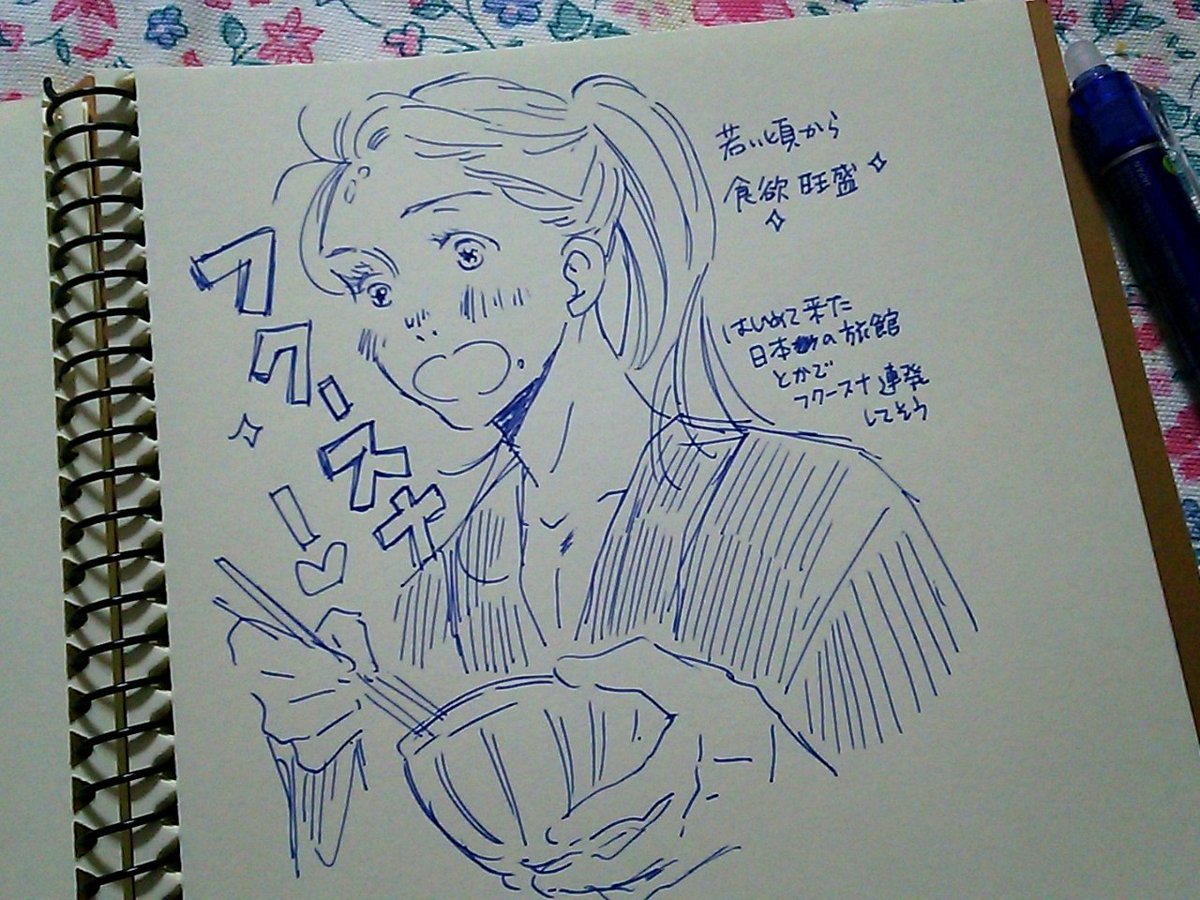 フクースナー♡
若い頃から
食欲旺盛
はじめて来た
日本の旅館
とかで
フクースナ連発
してそう